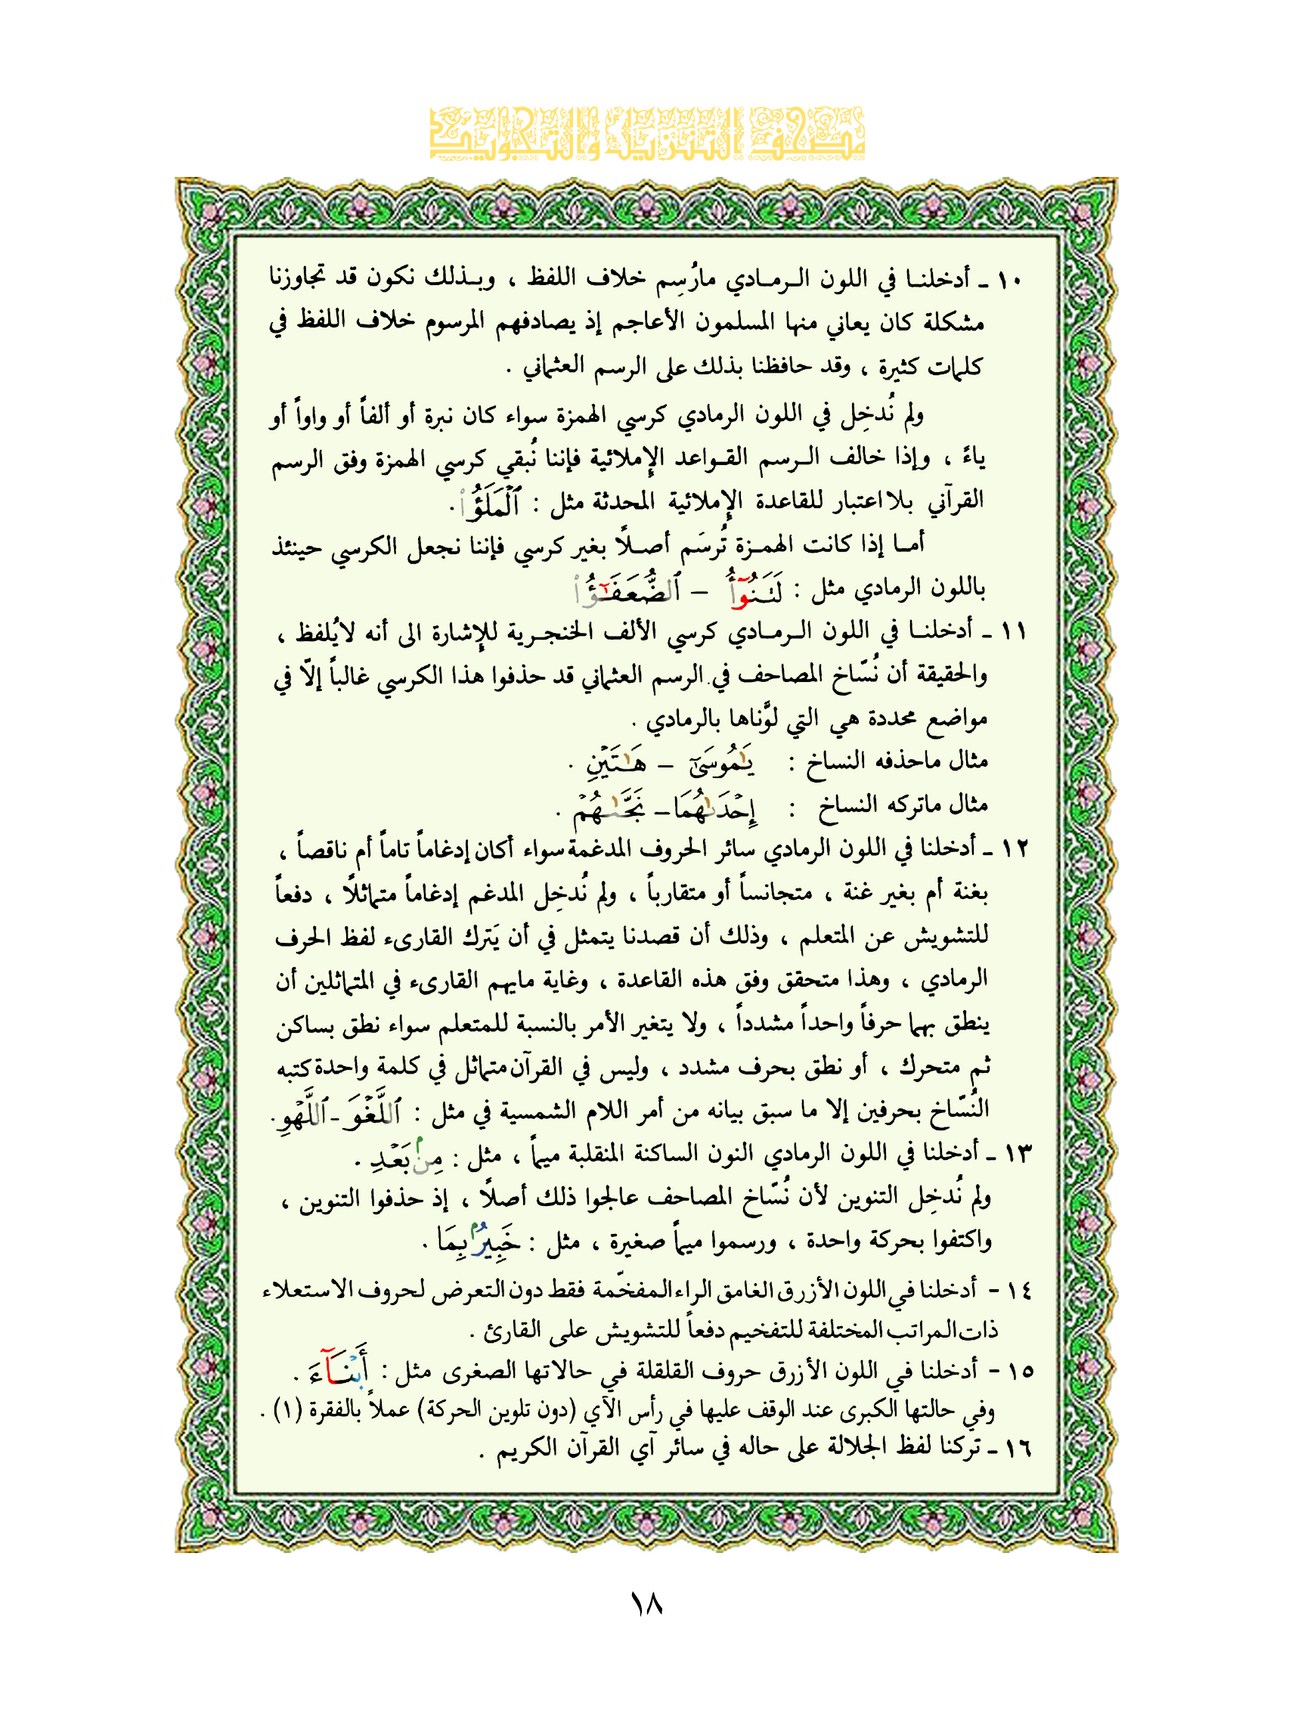 مصحف الترتيل والتجويد
١٠ ـ أدخلنـا في اللون الـرمـادي مارُسِم خلاف اللفظ ، وبـذلك نكون قد تجاوزنا
مشكلة كان يعاني منها المسلمون الأعاجم إذ يصادفهم المرسوم خلاف اللفظ في
كلمات كثيرة ، وقد حافظنا بذلك على الرسم العثماني .
ولم نُدخِل في اللون الرمادي كرسي الهمزة سواء كان نبرة أو ألفاً أو واواً أو
ياءً ، وإذا خالف الـرسم القـواعد الإملائية فإننا نُبقي كرسي الهمزة وفق الرسم
القرآني بلا اعتبار للقاعدة الإملائية المحدثة مثل : ٱلْمَلَؤُا .
أمـا إذا كانت الهمـزة تُرسَم أصـلاً بغير كرسي فإننا نجعل الكرسي حينئذ
باللون الرمادي مثل : لَتَنُوٓأُ ـ ٱلضُّعَفَـٰٓؤُا
١١ ـ أدخلنـا في اللون الـرمـادي كرسي الألف الخنجـرية للإشارة الى أنه لايُلفظ ،
والحقيقة أن نُسّاخ المصاحف في الرسم العثماني قد حذفوا هذا الكرسي غالباً إلاّ في
مواضع محددة هي التي لوَّناها بالرمادي .
مثال ماحذفه النساخ : يَٰمُوسَىٰٓ ـ هَٰتَيْنِ .
مثال ماتركه النساخ : إِحْدَىٰهُمَا ـ نَجَّىٰهُمْ .
١٢ ـ أدخلنا في اللون الرمادي سائر الحروف المدغمة سواء أكان إدغاماً تاماً أم ناقصاً ،
بغنة أم بغير غنة ، متجانساً أو متقارباً ، ولم نُدخِل المدغم إدغاماً متماثلاً ، دفعاً
للتشويش عن المتعلم ، وذلك أن قصدنا يتمثل في أن يَترك القارىء لفظ الحرف
الرمادي ، وهذا متحقق وفق هذه القاعدة ، وغاية مايهم القارىء في المتماثلين أن
ينطق بهما حرفاً واحداً مشدداً ، ولا يتغير الأمر بالنسبة للمتعلم سواء نطق بساكن
ثم متحرك ، أو نطق بحرف مشدد ، وليس في القرآن متماثل في كلمة واحدة كتبه
النُسّاخ بحرفين إلا ما سبق بيانه من أمر اللام الشمسية في مثل : ٱللَّغْوَ ـ ٱللَّهْوِ .
١٣ ـ أدخلنا في اللون الرمادي النون الساكنة المنقلبة ميماً ، مثل : مِنۢ بَعْدِ .
ولم نُدخِل التنوين لأن نُسّاخ المصاحف عالجوا ذلك أصلاً ، إذ حذفوا التنوين ،
واكتفوا بحركة واحدة ، ورسموا ميماً صغيرة ، مثل : خَبِيرُۢ بِمَا .
١٤ - أدخلنا في اللون الأزرق الغامق الراء المفخّمة فقط دون التعرض لحروف الاستعلاء
ذات المراتب المختلفة للتفخيم دفعاً للتشويش على القارئ .
١٥ - أدخلنا في اللون الأزرق حروف القلقلة في حالاتها الصغرى مثل : أَبْنَآءَ .
وفي حالتها الكبرى عند الوقف عليها في رأس الآي (دون تلوين الحركة) عملاً بالفقرة (١) .
١٦ ـ تركنا لفظ الجلالة على حاله في سائر آي القرآن الكريم .
١٨